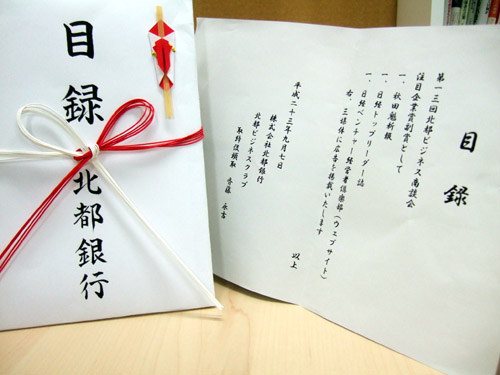 目録
北都銀行
目録
第一三回北都ビジネス商談会
注目企業賞副賞として
一、秋田魁新報
一、日経トップリーダー誌
一、日経ベンチャー経営者倶楽部(ウェブサイト)
右、三媒体に広告を掲載いたします
以上
平成二十三年九月七日
株式会社北都銀行
北都ビジネスクラブ
取締役頭取 斉藤 永吉